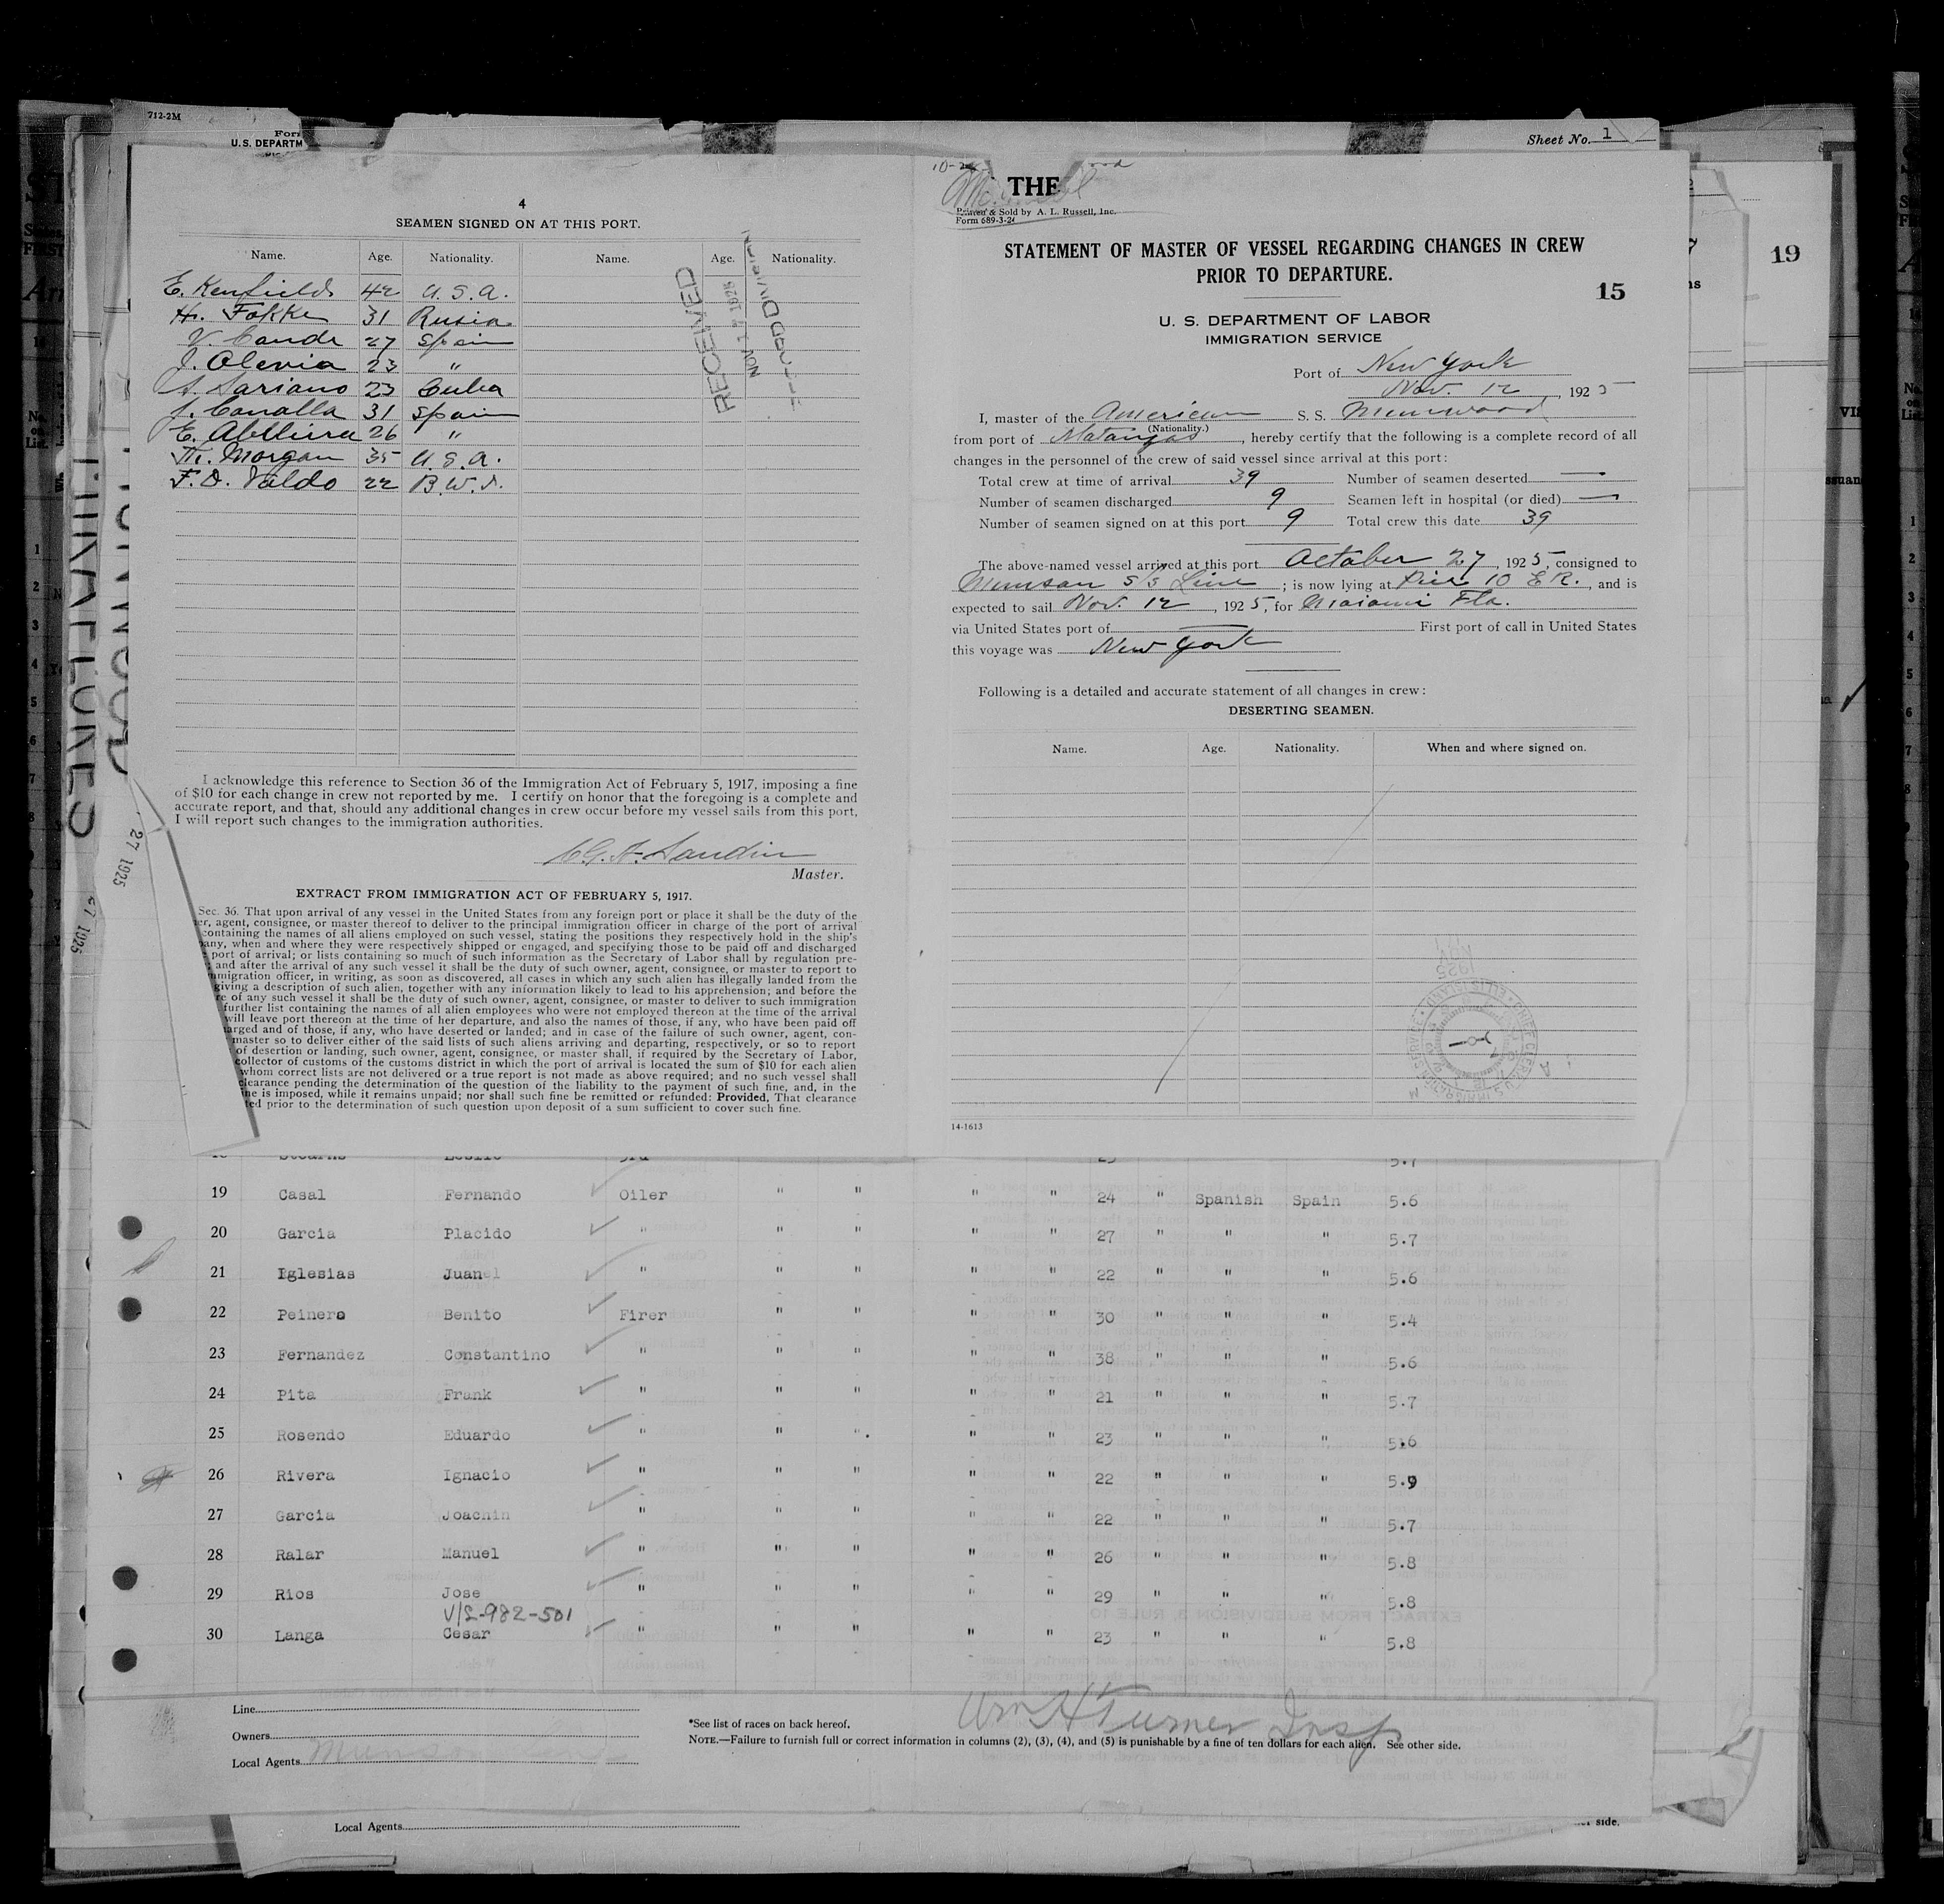 712-2M
U.S. DEPARTM
Sheet No. 1
4
SEAMEN SIGNED ON AT THIS PORT.
Name. Age. Nationality. Name. Age. Nationality.
E. Kenfield 42 U.S.A.
H. Fokke 31 Rusia
V. Conde 27 Spain
23 "
23 Cuba
31 Spain
E. 26 "
M. Morgan 35 U.S.A.
F. D. Valdo 22 B.W.I.
RECEIVED
NOV 1925
I acknowledge this reference to Section 36 of the Immigration Act of February 5, 1917, imposing a fine
of $10 for each change in crew not reported by me. I certify on honor that the foregoing is a complete and
accurate report, and that, should any additional changes in crew occur before my vessel sails from this port,
I will report such changes to the immigration authorities.
Sandin
Master.
EXTRACT FROM IMMIGRATION ACT OF FEBRUARY 5, 1917.
Sec. 36. That upon arrival of any vessel in the United States from any foreign port or place it shall be the duty of the
er, agent, consignee, or master thereof to deliver to the principal immigration officer in charge of the port of arrival
containing the names of all aliens employed on such vessel, stating the positions they respectively hold in the ship's
pany, when and where they were respectively shipped or engaged, and specifying those to be paid off and discharged
port of arrival; or lists containing so much of such information as the Secretary of Labor shall by regulation pre-
and after the arrival of any such vessel it shall be the duty of such owner, agent, consignee, or master to report to
mmigration officer, in writing, as soon as discovered, all cases in which any such alien has illegally landed from the
giving a description of such alien, together with any information likely to lead to his apprehension; and before the
re of any such vessel it shall be the duty of such owner, agent, consignee, or master to deliver to such immigration
further list containing the names of all alien employees who were not employed thereon at the time of the arrival
will leave port thereon at the time of her departure, and also the names of those, if any, who have been paid off
arged and of those, if any, who have deserted or landed; and in case of the failure of such owner, agent, con-
master so to deliver either of the said lists of such aliens arriving and departing, respectively, or so to report
of desertion or landing, such owner, agent, consignee, or master shall, if required by the Secretary of Labor,
collector of customs of the customs district in which the port of arrival is located the sum of $10 for each alien
whom correct lists are not delivered or a true report is not made as above required; and no such vessel shall
clearance pending the determination of the question of the liability to the payment of such fine, and, in the
ne is imposed, while it remains unpaid; nor shall such fine be remitted or refunded: Provided, That clearance
ted prior to the determination of such question upon deposit of a sum sufficient to cover such fine.
27 1925
27 1925
THE
Printed & Sold by A. L. Russell, Inc.
Form 689-3-24
STATEMENT OF MASTER OF VESSEL REGARDING CHANGES IN CREW
PRIOR TO DEPARTURE.
15
U. S. DEPARTMENT OF LABOR
IMMIGRATION SERVICE
Port of New York
Nov. 12, 1925
I, master of the American S. S. Munwood
(Nationality.)
from port of Matanzas, hereby certify that the following is a complete record of all
changes in the personnel of the crew of said vessel since arrival at this port:
Total crew at time of arrival 39 Number of seamen deserted —
Number of seamen discharged 9 Seamen left in hospital (or died) —
Number of seamen signed on at this port 9 Total crew this date 39
The above-named vessel arrived at this port October 27, 1925, consigned to
Munson S/S Line; is now lying at Pier 10 E.R., and is
expected to sail Nov. 12, 1925, for Miami Fla.
via United States port of — First port of call in United States
this voyage was New York
Following is a detailed and accurate statement of all changes in crew:
DESERTING SEAMEN.
Name. Age. Nationality. When and where signed on.
14-1613
19
19 Casal Fernando Oiler " " " " 24 " Spanish Spain 5.6
20 Garcia Placido " " " " " 27 " " " 5.7
21 Iglesias Juan " " " " " 22 " " " 5.6
22 Peinero Benito Firer " " " " 30 " " " 5.4
23 Fernandez Constantino " " " " " 38 " " " 5.6
24 Pita Frank " " " " " 21 " " " 5.7
25 Rosendo Eduardo " " " " " 23 " " " 5.6
26 Rivera Ignacio " " " " " 22 " " " 5.9
27 Garcia Joachin " " " " " 22 " " " 5.7
28 Ralar Manuel " " " " " 26 " " " 5.8
29 Rios Jose " " " " " 29 " " " 5.8
V/L-982-501
30 Langa Cesar " " " " " 23 " " " 5.8
Line
Owners
Local Agents
*See list of races on back hereof.
Wm H Turner Insp
NOTE.—Failure to furnish full or correct information in columns (2), (3), (4), and (5) is punishable by a fine of ten dollars for each alien. See other side.
Local Agents
side.